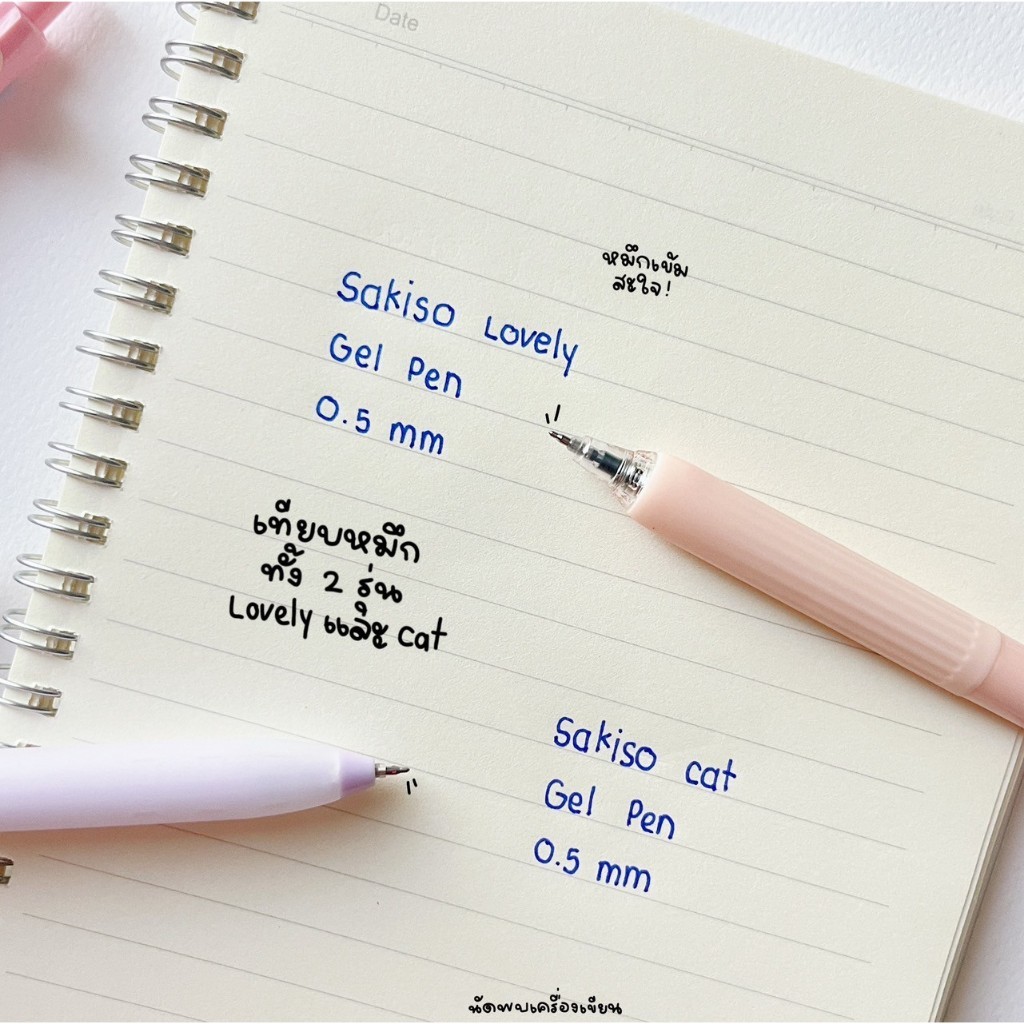 Date
หมึกเข้ม
สะใจ!
Sakiso Lovely
Gel Pen
0.5 mm
เทียบหมึก
ทั้ง 2 รุ่น
Lovely และ cat
Sakiso cat
Gel Pen
0.5 mm
นัดพบเครื่องเขียน